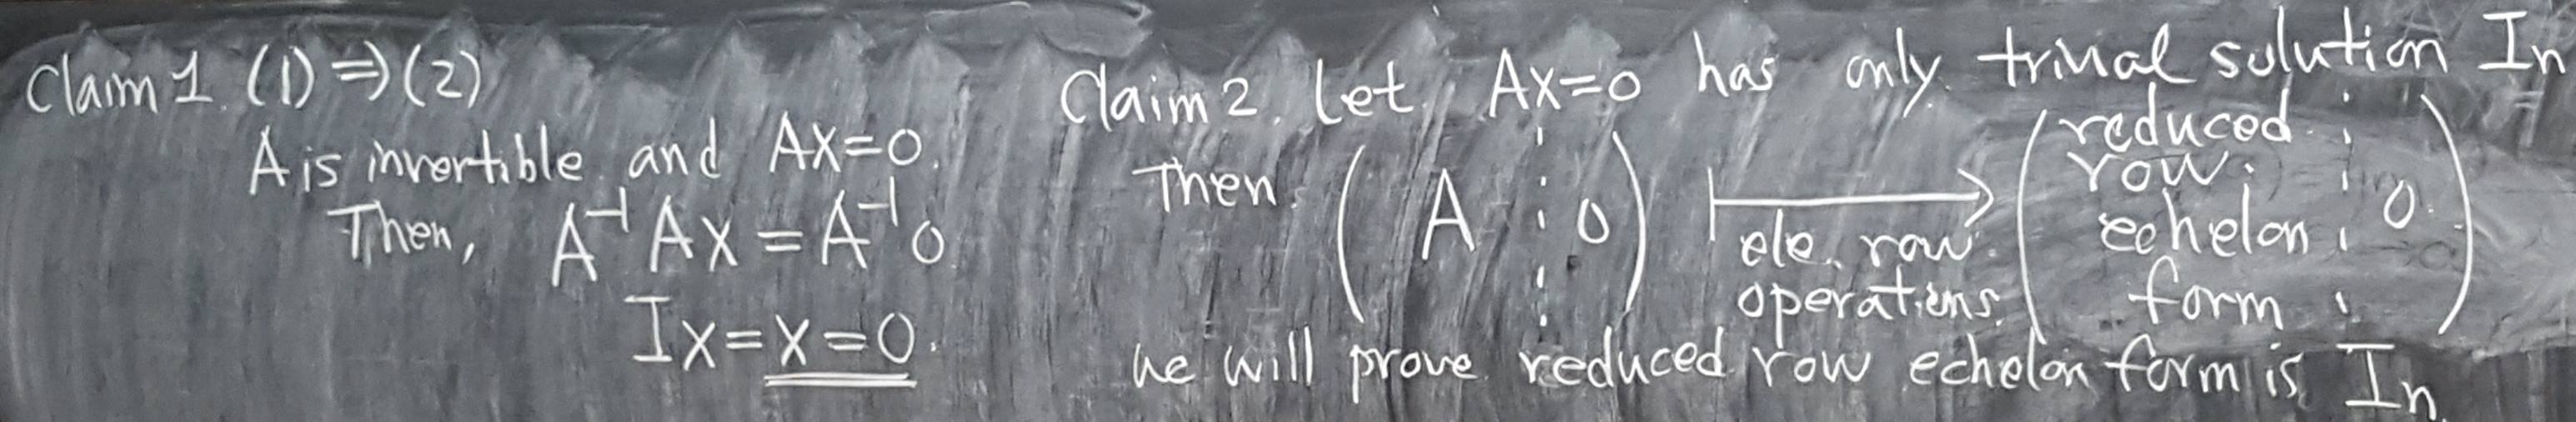 Claim 1. (1) ⇒ (2)
A is invertible and Ax=0.
Then, A⁻¹Ax = A⁻¹0
Ix = x = 0.
Claim 2. Let Ax=0 has only trivial solution In
Then (A ⋮ 0) ⟼ (reduced row echelon form ⋮ 0)
ele. row
operations.
we will prove reduced row echelon form is In.